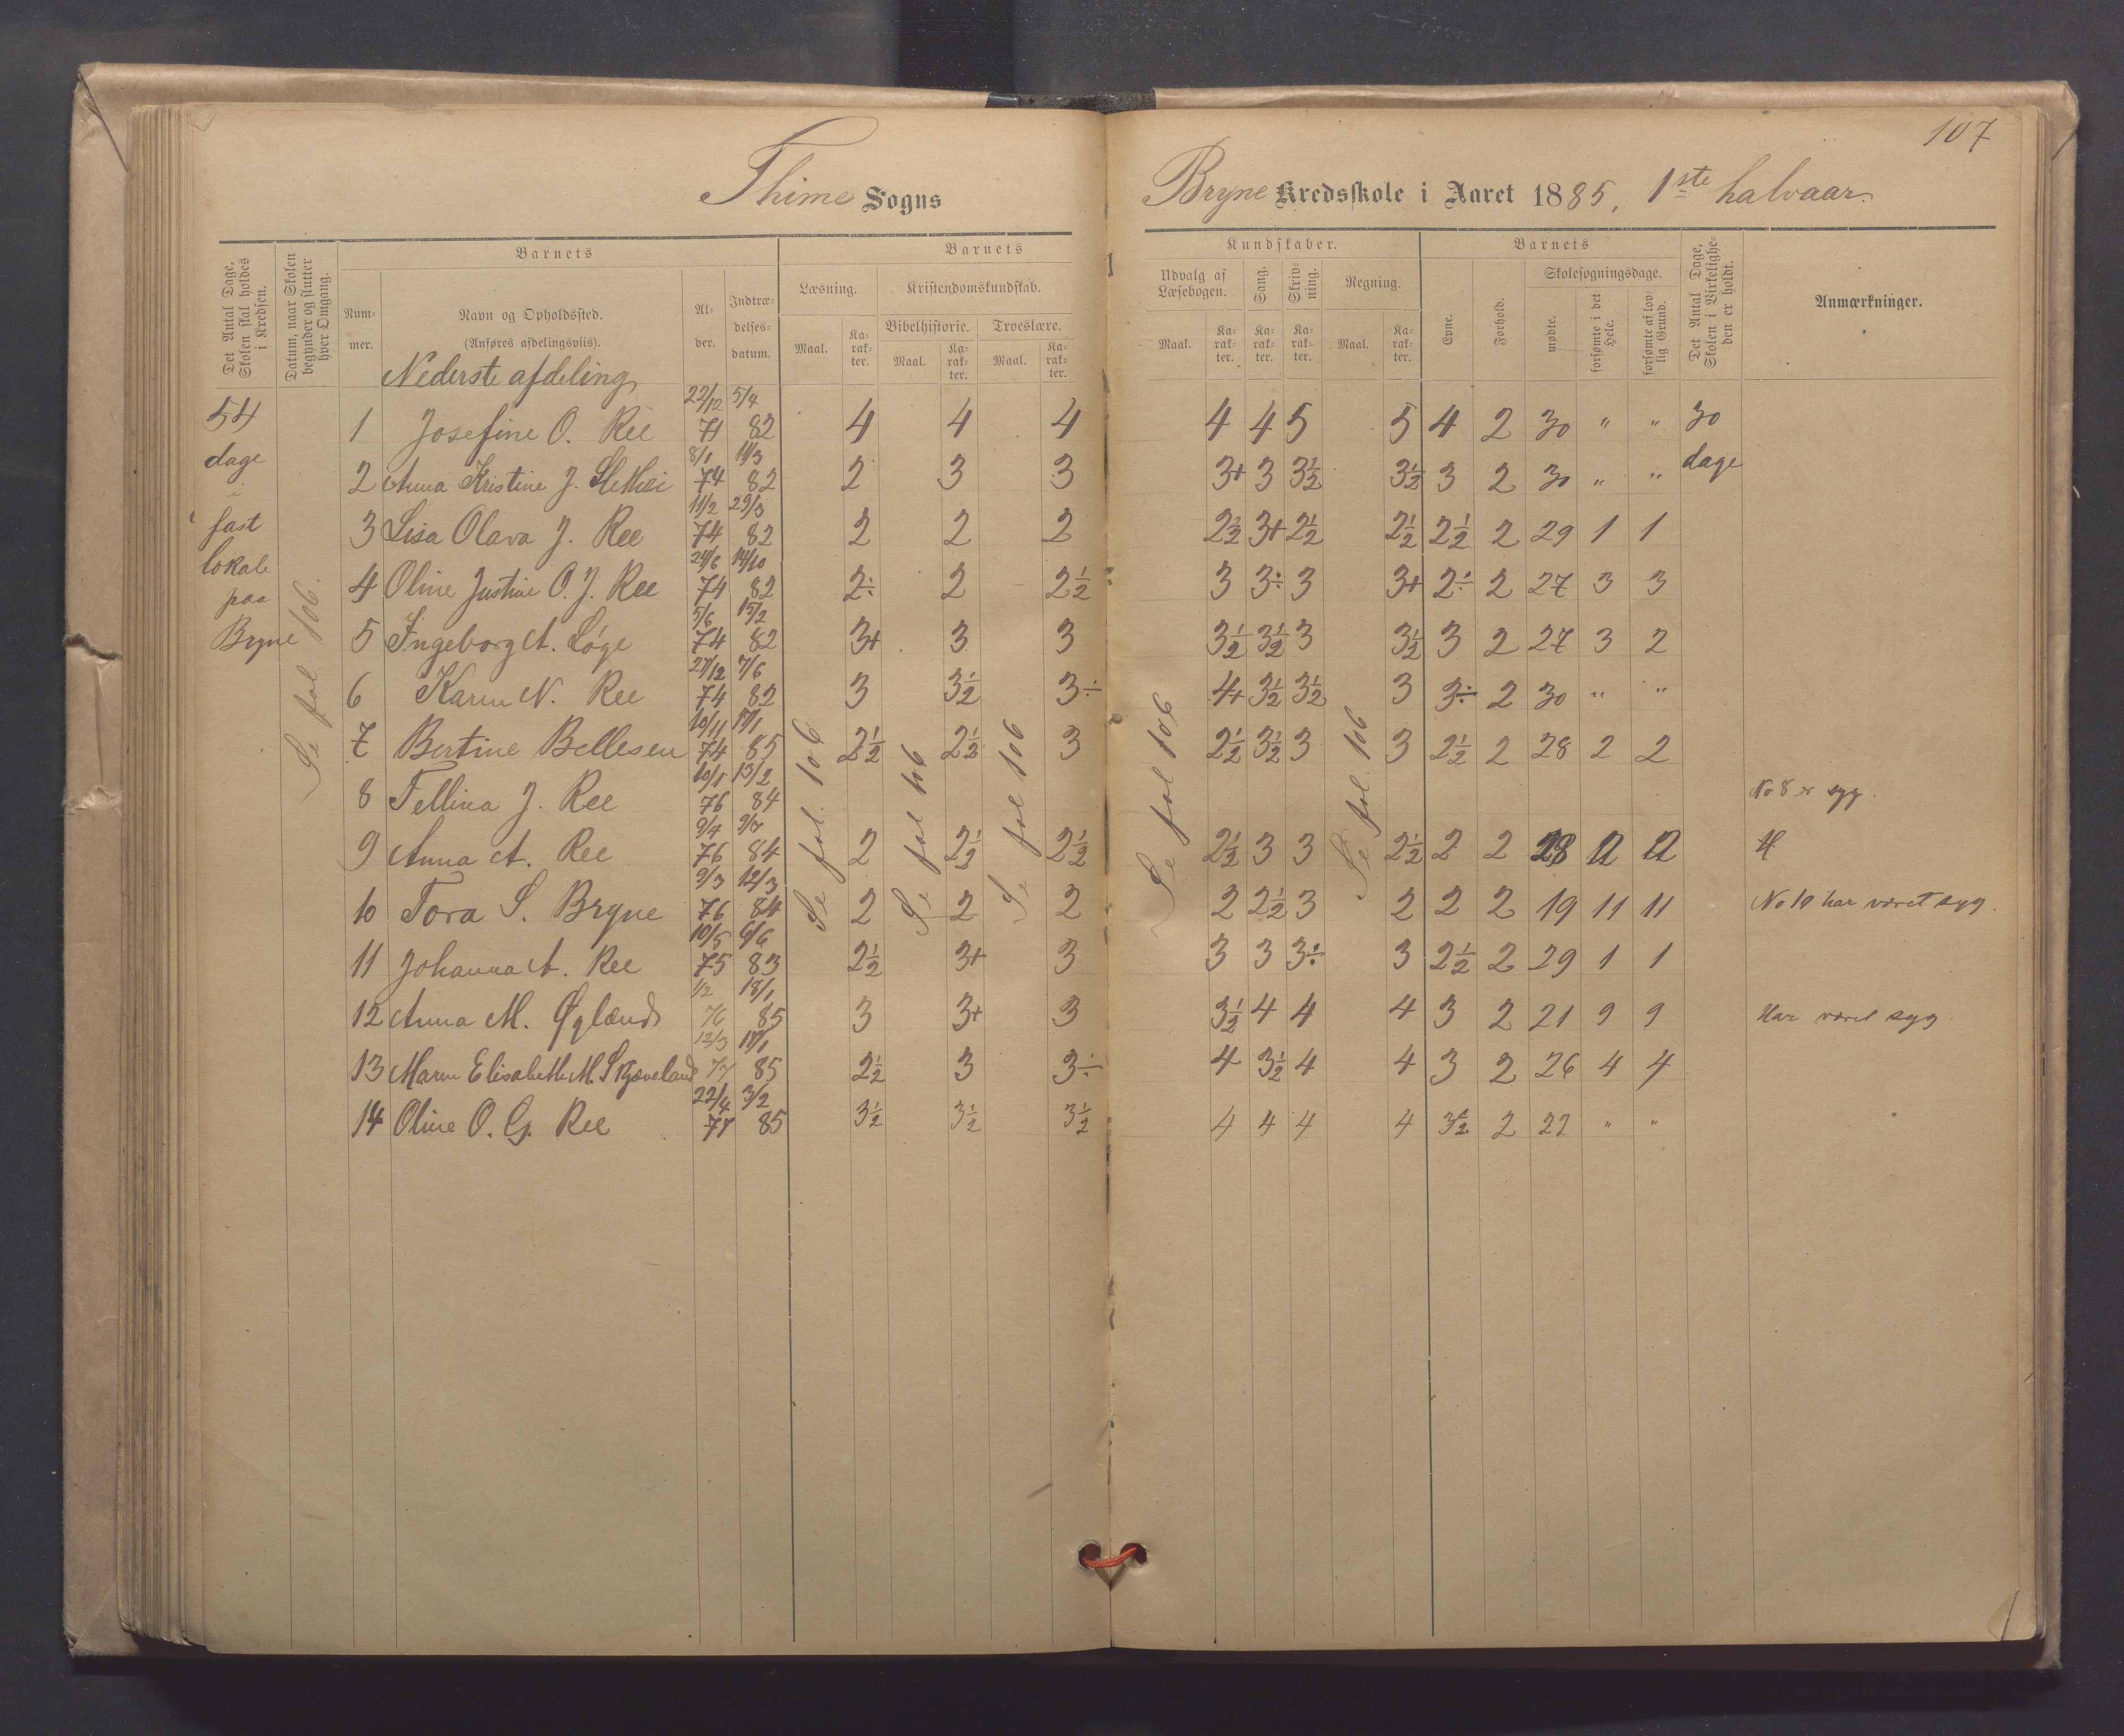 107
Thime Sogns Bryne Kredsskole i Aaret 1885, 1ste halvaar.
Det Antal Dage, Skolen skal holdes i Kredsen.
Datum, naar Skolen begynder og slutter hver Omgang.
Barnets
Nummer.
Navn og Opholdssted.
(Anføres afdelingsviis).
Alder.
Indtrædelsesdatum.
Barnets
Læsning.
Maal.
Karakter.
Kristendomskundskab.
Bibelhistorie.
Maal.
Karakter.
Troeslære.
Maal.
Karakter.
Kundskaber.
Udvalg af Læsebogen.
Maal.
Karakter.
Sang.
Karakter.
Skrivning.
Karakter.
Regning.
Maal.
Karakter.
Barnets
Evne.
Forhold.
Skolesøgningsdage.
mødte.
forsømte i det Hele.
forsømte af lovlig Grund.
Det Antal Dage, Skolen i Virkeligheden er holdt.
Anmærkninger.
Nederste afdeling
54 dage i fast lokale paa Bryne
Se fol 106.
1 Josefine O. Ree 22/12 71 5/4 82 4 4 4 4 4 5 5 4 2 30 " " 30 dage
2 Anna Kristine J. 8/1 74 11/3 82 2 3 3 3+ 3 3½ 3½ 3 2 30 " "
3 Lisa Olava J. Ree 11/2 74 29/3 82 2 2 2 2½ 3+ 2½ 2½ 2½ 2 29 1 1
4 Oline Justine O. J. Ree 24/6 74 14/10 82 2÷ 2 2½ 3 3÷ 3 3+ 2÷ 2 27 3 3
5 Ingeborg A. Løge 5/6 74 15/2 82 3+ 3 3 3½ 3½ 3 3½ 3 2 27 3 2
6 Karen N. Ree 27/12 74 7/6 82 3 3½ 3÷ 4+ 3½ 3½ 3 3÷ 2 30 " "
7 Bertine Bellesen 10/11 74 17/1 85 2½ 2½ 3 2½ 3½ 3 3 2½ 2 28 2 2
8 Tellina J. Ree 10/1 76 13/2 84 No 8 er syg.
9 Anna A. Ree 9/4 76 9/7 84 2 2½ 2½ 2½ 3 3 2½ 2 2 28
10 Tora S. Bryne 9/3 76 12/3 84 2 2 2 2 2½ 3 2 2 2 19 11 11 No 10 har været syg.
11 Johanna A. Ree 10/5 75 6/6 83 2½ 3+ 3 3 3 3÷ 3 2½ 2 29 1 1
12 Anna M. Øglænd 1/2 76 18/1 85 3 3+ 3 3½ 4 4 4 3 2 21 9 9 Har været syg
13 Maren Elisabeth M. Skjæveland 12/3 77 18/1 85 2½ 3 3÷ 4 3½ 4 4 3 2 26 4 4
14 Oline O. G. Ree 22/4 77 3/2 85 3½ 3½ 3½ 4 4 4 4 3½ 2 22 " "
Se fol. 106
Se fol 106
Se fol 106
Se fol 106
Se fol. 106